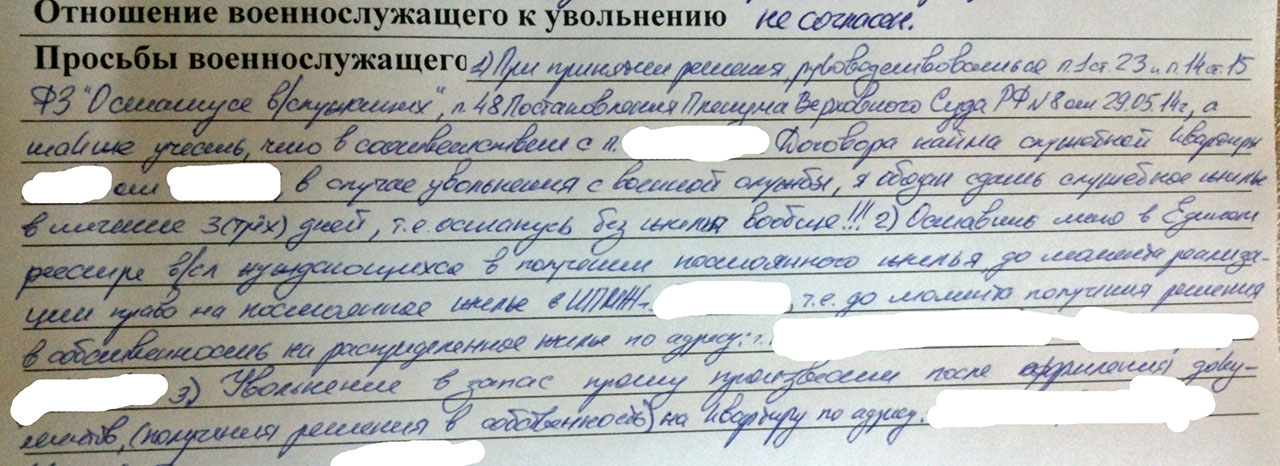 Отношение военнослужащего к увольнению не согласен.
Просьбы военнослужащего 1) При принятии решения, руководствоваться п.1 ст.23 и п.14 ст.15
ФЗ "О статусе в/служащих", п.48 Постановления Пленума Верховного Суда РФ №8 от 29.05.14г, а
также учесть, что в соответствии с п. Договора найма служебной квартиры
от в случае увольнения с военной службы, я обязан сдать служебное жилье
в течение 3(трёх) дней, т.е. останусь без жилья вообще!!! 2) Оставить меня в Едином
реестре в/сл нуждающихся в получении постоянного жилья до момента реализа-
ции право на постоянное жилье в ИПМЖ г. , т.е. до момента получения решения
в собственность на распределенное жилье по адресу: г.
3) Увольнение в запас прошу произвести после оформления доку-
ментов, (получения решения в собственность) на квартиру по адресу.